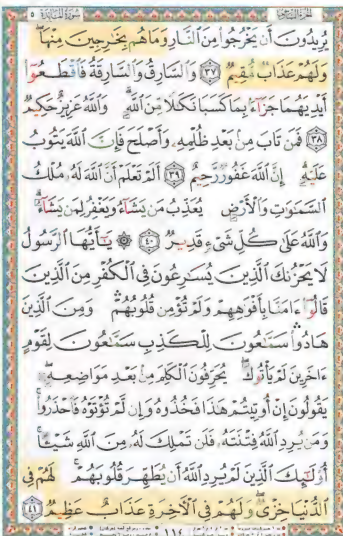 سُورَةُ المَائِدَةِ ٥
يُرِيدُونَ أَن يَخْرُجُوا۟ مِنَ ٱلنَّارِ وَمَا هُم بِخَٰرِجِينَ مِنْهَا ۖ
وَلَهُمْ عَذَابٌ مُّقِيمٌ ٣٧ وَٱلسَّارِقُ وَٱلسَّارِقَةُ فَٱقْطَعُوٓا۟
أَيْدِيَهُمَا جَزَآءًۢ بِمَا كَسَبَا نَكَٰلًا مِّنَ ٱللَّهِ ۗ وَٱللَّهُ عَزِيزٌ حَكِيمٌ
٣٨ فَمَن تَابَ مِنۢ بَعْدِ ظُلْمِهِۦ وَأَصْلَحَ فَإِنَّ ٱللَّهَ يَتُوبُ
عَلَيْهِ ۗ إِنَّ ٱللَّهَ غَفُورٌ رَّحِيمٌ ٣٩ أَلَمْ تَعْلَمْ أَنَّ ٱللَّهَ لَهُۥ مُلْكُ
ٱلسَّمَٰوَٰتِ وَٱلْأَرْضِ يُعَذِّبُ مَن يَشَآءُ وَيَغْفِرُ لِمَن يَشَآءُ ۗ
وَٱللَّهُ عَلَىٰ كُلِّ شَىْءٍ قَدِيرٌ ٤٠ ۞ يَٰٓأَيُّهَا ٱلرَّسُولُ
لَا يَحْزُنكَ ٱلَّذِينَ يُسَٰرِعُونَ فِى ٱلْكُفْرِ مِنَ ٱلَّذِينَ
قَالُوٓا۟ ءَامَنَّا بِأَفْوَٰهِهِمْ وَلَمْ تُؤْمِن قُلُوبُهُمْ ۛ وَمِنَ ٱلَّذِينَ
هَادُوا۟ ۛ سَمَّٰعُونَ لِلْكَذِبِ سَمَّٰعُونَ لِقَوْمٍ
ءَاخَرِينَ لَمْ يَأْتُوكَ ۖ يُحَرِّفُونَ ٱلْكَلِمَ مِنۢ بَعْدِ مَوَاضِعِهِۦ ۖ
يَقُولُونَ إِنْ أُوتِيتُمْ هَٰذَا فَخُذُوهُ وَإِن لَّمْ تُؤْتَوْهُ فَٱحْذَرُوا۟ ۚ
وَمَن يُرِدِ ٱللَّهُ فِتْنَتَهُۥ فَلَن تَمْلِكَ لَهُۥ مِنَ ٱللَّهِ شَيْـًٔا ۚ
أُو۟لَٰٓئِكَ ٱلَّذِينَ لَمْ يُرِدِ ٱللَّهُ أَن يُطَهِّرَ قُلُوبَهُمْ ۚ لَهُمْ فِى
ٱلدُّنْيَا خِزْىٌ ۖ وَلَهُمْ فِى ٱلْءَاخِرَةِ عَذَابٌ عَظِيمٌ ٤١
١١٤